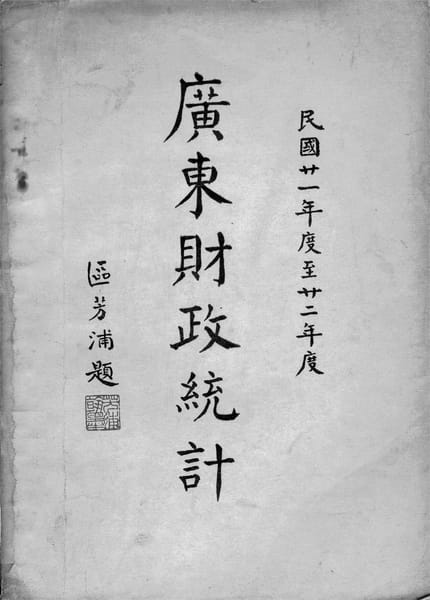 民國廿一年度至廿二年度
廣東財政統計
區芳浦題